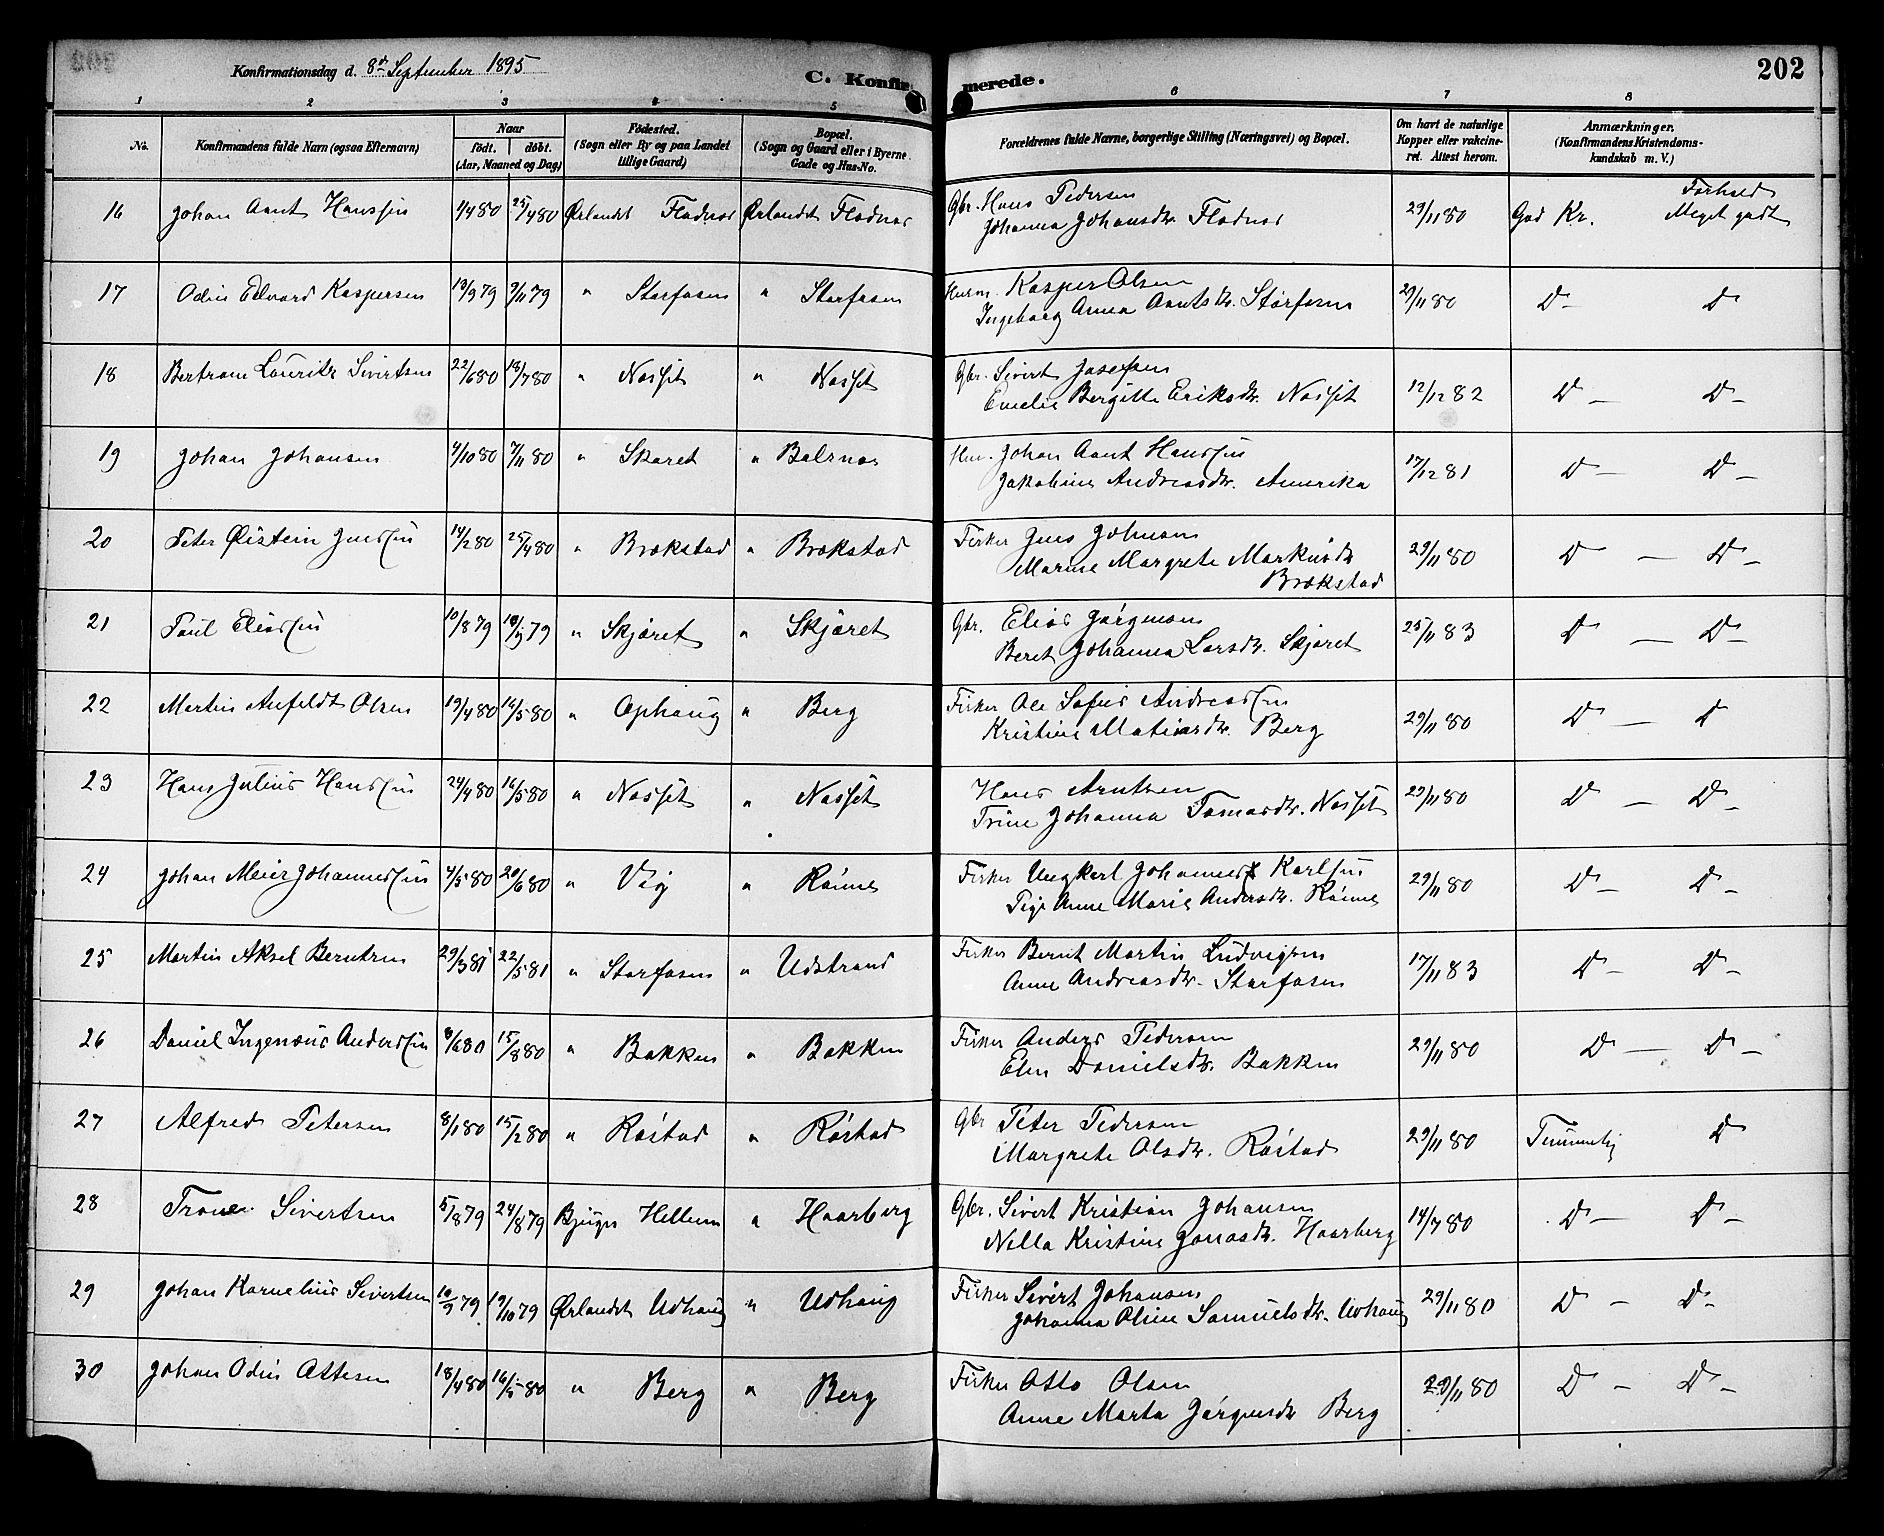 Konfirmationsdag d. 8de September 1895
C. Konfirmerede.
202
1 2 3 4 5 6 7 8
No.
Konfirmandens fulde Navn (ogsaa Efternavn)
Naar
födt. döbt.
(Aar, Maaned og Dag)
Födested.
(Sogn eller By og paa Landet
tillige Gaard)
Bopæl.
(Sogn og Gaard eller i Byerne
Gade og Hus-No.
Forældrenes fulde Navne, borgerlige Stilling (Næringsvei) og Bopæl.
Om havt de naturlige
Kopper eller vakcine-
ret. Attest herom.
Anmærkninger.
(Konfirmandens Kristendoms-
kundskab m. V.)
Forhold
16 Johan Arnt Hanssen 1/4 80 25/4 80 Ørlandet Fladnes Ørlandet Fladnes Gbr. Hans Pedersen 29/11 80 God Kr. Meget godt
Johanna Johansdtr. Fladnes
17 Odin Edvard Kaspersen 19/9 79 9/11 79 " Storfosen " Storfosen Husm. Kasper Olsen 29/11 80 D- D
Ingeborg Anna Arntsdtr. Storfosen
18 Bertram Lauritz Sivertsen 22/6 80 18/7 80 " Nosset " Nosset Gbr. Sivert Josefsen 12/12 82 D - D -
Emelie Bergitte Eriksdtr. Nosset
19 Johan Johansen 4/10 80 7/11 80 " Skaret " Balsnes Johan Arnt Hanssen 17/12 81 D - D -
Jakobine Andreasdtr. Amerika
20 Peter Øistein Jenssen 14/2 80 25/4 80 " Brækstad " Brækstad Fisker Jens Johnsen 29/11 80 D - D -
Marine Margrete Markusdtr
Brækstad
21 Paul Eliassen 10/8 79 19/9 79 " Skjøret " Skjøret Gbr. Elias Jørgensen 25/11 83 D - D -
Beret Johanna Larsdtr. Skjøret
22 Martin Anfeldt Olsen 19/4 80 16/5 80 " Ophaug " Berg Fisker Ole Sofus Andreassen 29/11 80 D - D
Kristine Matiasdtr. Berg
23 Hans Julius Hanssen 24/4 80 16/5 80 " Nosset " Nosset Hans Arntsen 29/11 80 D - D -
Trine Johanna Tomasdtr. Nosset
24 Johan Meier Johannessen 4/5 80 20/6 80 " Vig " Rønne Fisker Ungkarl Johannes Karlsen 29/11 80 D - D -
Pige Anne Marie Andersdtr. Rønne
25 Martin Aksel Berntsen 29/3 81 22/5 81 " Storfosen " Udstrand Fisker Bernt Martin Ludvigsen 17/11 83 D - D -
Anne Andreasdtr. Storfosen
26 Daniel Ingenæus Anderssen 8/6 80 15/8 80 " Bakken " Bakken Fisker Anders Pedersen 29/11 80 D - D -
Elen Danielsdtr. Bakken
27 Alfred Petersen 8/1 80 15/2 80 " Røstad " Røstad Gbr Peter Pedersen 29/11 80 Temmelig D
Margrete Olsdtr. Røstad
28 Sivertsen 5/8 79 24/8 79 Bjugn Hellem " Haarberg Gbr. Sivert Kristian Johansen 14/7 80 D - D -
Nella Kristine Jonasdtr. Haarberg
29 Johan Kornelius Sivertsen 10/9 79 19/10 79 Ørlandet Udhaug " Udhaug Fisker Sivert Johansen 29/11 80 D - D -
Johanna Oline Samuelsdtr. Udhaug
30 Johan Odin Ottesen 18/4 80 16/5 80 " Berg " Berg Fisker Otto Olsen 29/11 80 D - D -
Anne Marta Jørgensdtr Berg